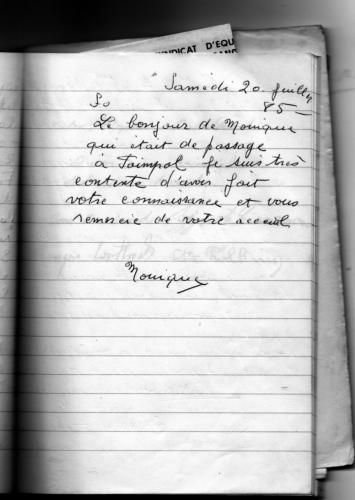 NDICAT D'EQU
Samedi 20 juillet
85
Le bonjour de Monique
qui était de passage
à Paimpol je suis très
contente d'avoir fait
votre connaissance et vous
remercie de votre acceuil
Monique